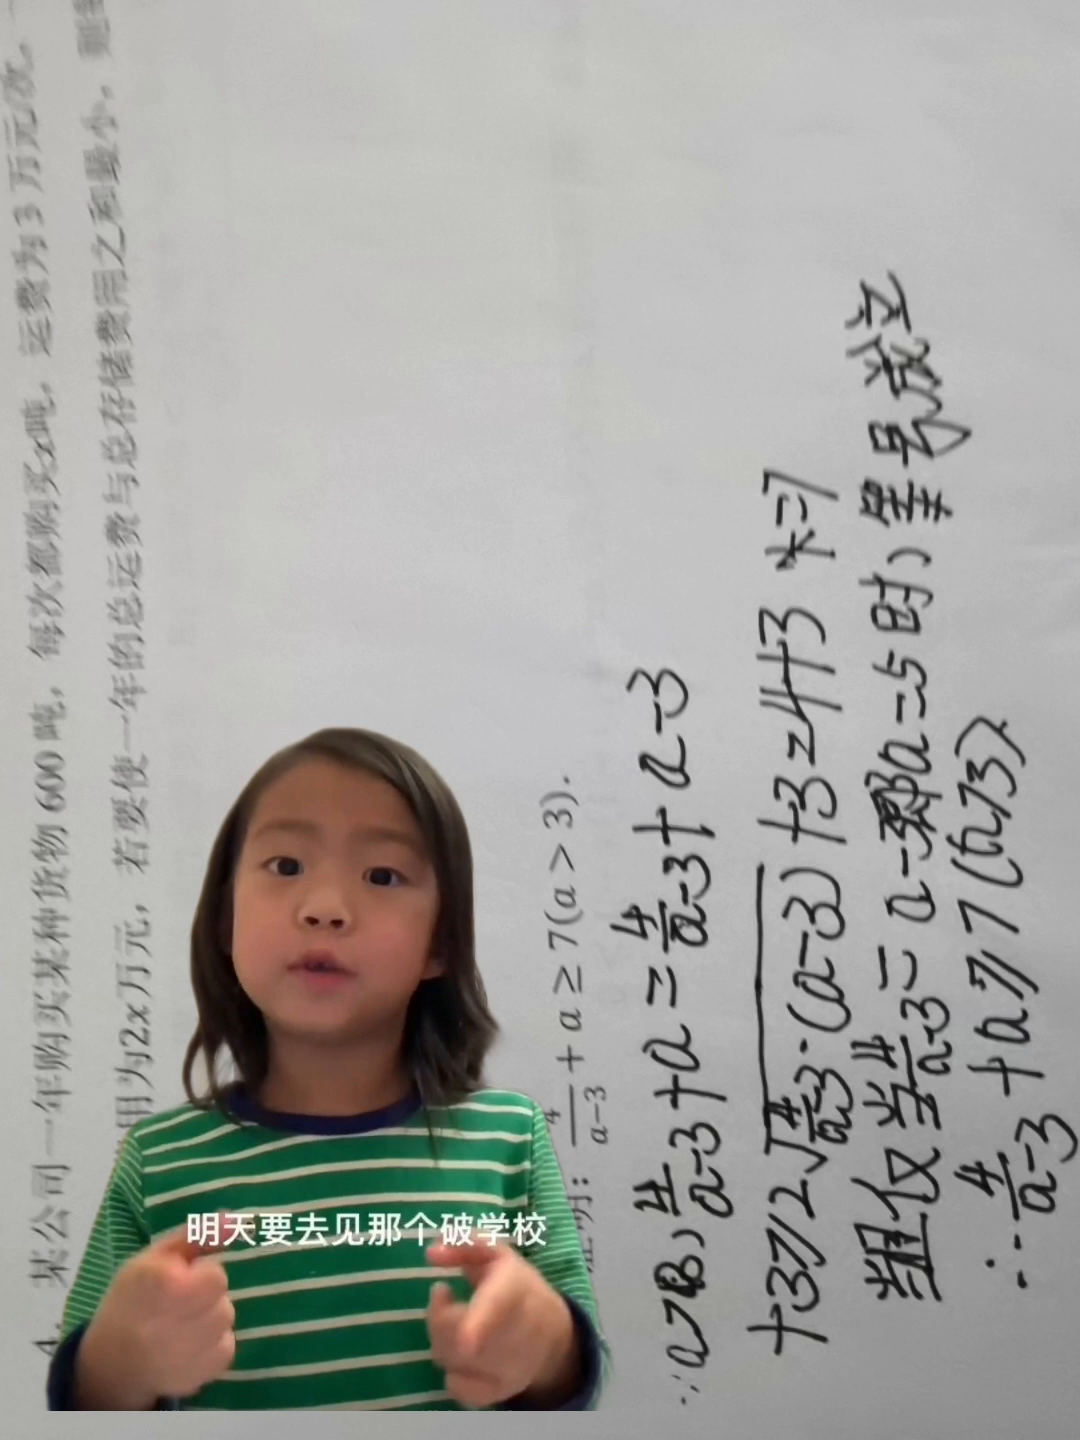 4. 某公司一年购买某种货物 600 吨，每次都购买x吨，运费为 3 万元/次，一
用为2x万元，若要使一年的总运费与总存储费用之和最小，则
明：4/(a−3) + a ≥ 7(a > 3).
∵a>3, 4/(a-3)+a=4/(a-3)+a-3
+3≥2√(4/(a-3)·(a-3))+3=4+3=7
当且仅当4/(a-3)=a-3即a=5时,等号成立
∴4/(a-3)+a≥7(a>3)
明天要去见那个破学校